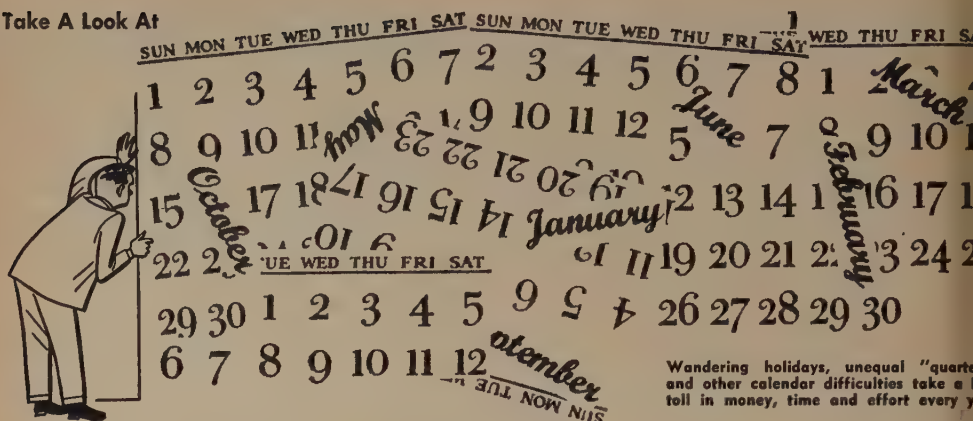 Take A Look At
SUN MON TUE WED THU FRI SAT SUN MON TUE WED THU FRI SAT WED THU FRI
1 2 3 4 5 6 7 2 3 4 5 6 7 8 1 March
8 9 10 11 May 23 22 9 10 11 12 5 June 7 9 10
15 October 17 18 17 16 15 14 21 20 19 January 13 14 February 16 17
22 10 9 11 19 20 21 24
WED THU FRI SAT
29 30 1 2 3 4 5 6 5 4 26 27 28 29 30
6 7 8 9 10 11 12 otember
SUN MON TUE
Wandering holidays, unequal
and other calendar difficulties take a
toll in money, time and effort every